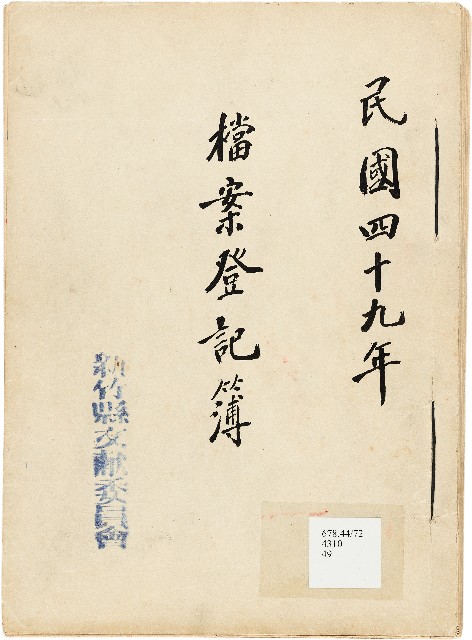 民國四十九年
檔案登記簿
新竹縣文獻委員會
678.44/72
4310
49